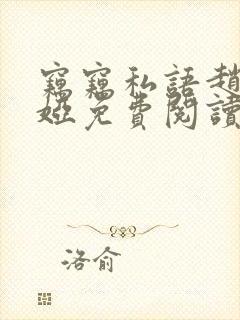 竊竊私語趙
婭免費閱讀
洛俞